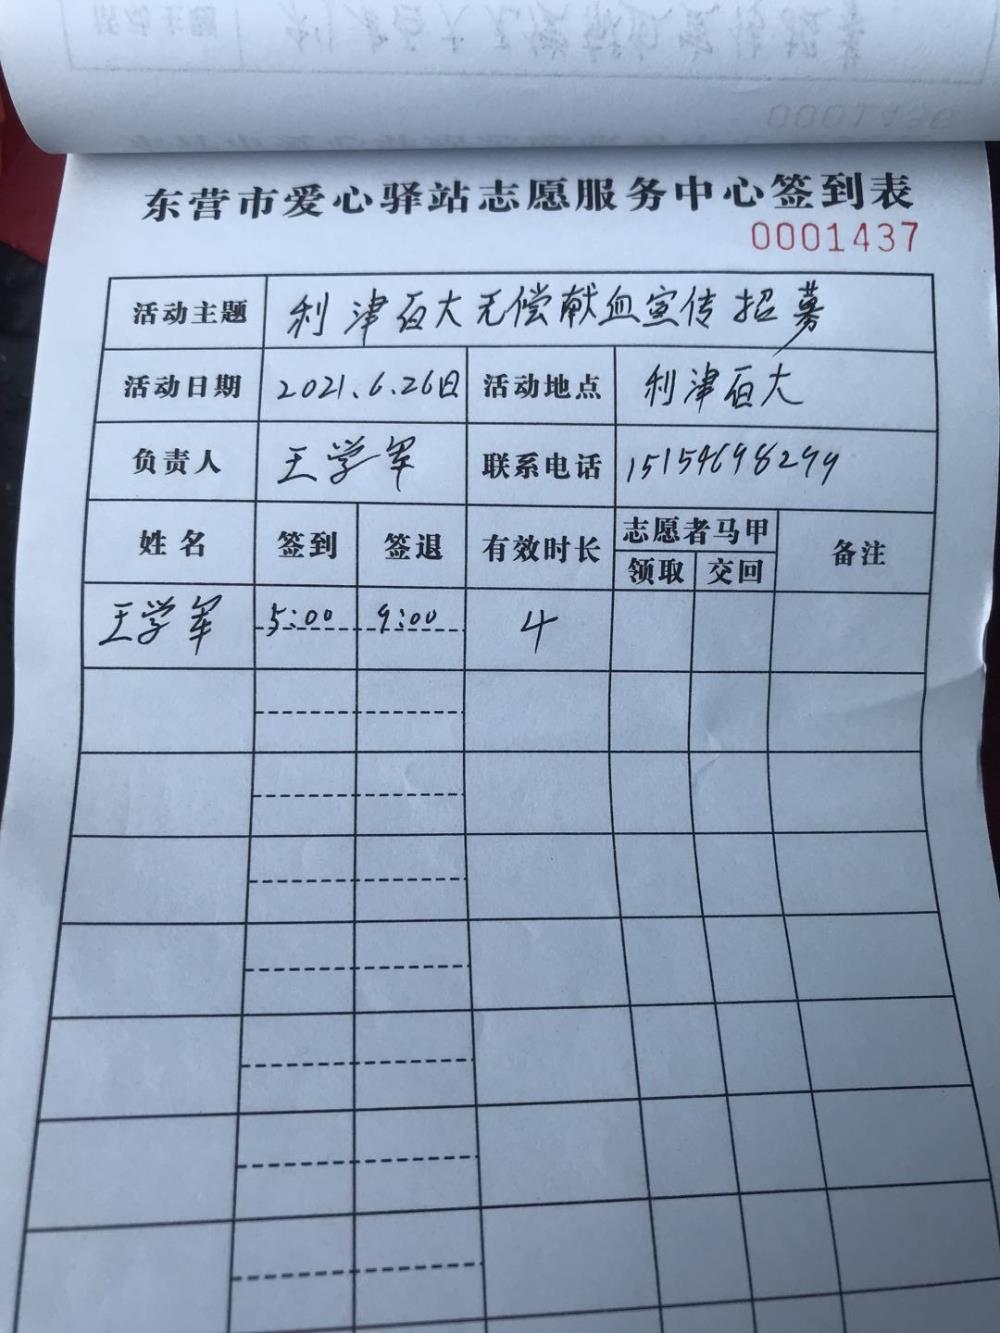 东营市爱心驿站志愿服务中心签到表
0001437
活动主题 利津百大无偿献血宣传招募
活动日期 2021.6.26日 活动地点 利津百大
负责人 王学军 联系电话 15154698299
姓名 签到 签退 有效时长 志愿者马甲 备注
领取 交回
王学军 5:00 9:00 4